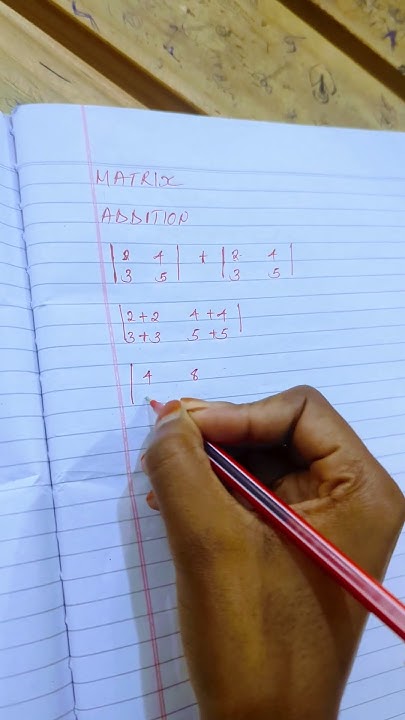 MATRIX
ADDITION
|2 4| + |2 4|
|3 5| |3 5|
|2+2 4+4|
|3+3 5+5|
|4 8